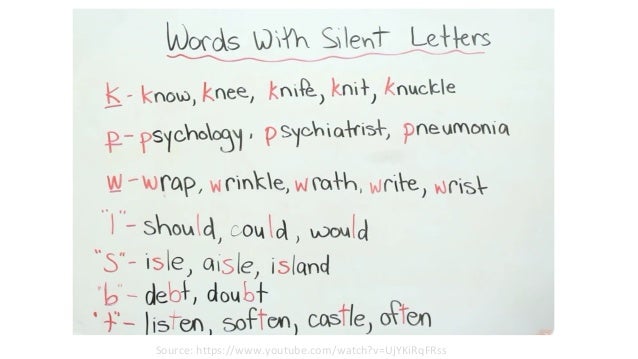 Words With Silent Letters
K - know, knee, knife, knit, knuckle
p - psychology, psychiatrist, pneumonia
w - wrap, wrinkle, wrath, write, wrist
"l" - should, could, would
"S" - isle, aisle, island
"b" - debt, doubt
"t" - listen, soften, castle, often
Source: https://www.youtube.com/watch?v=UJYKiRqFRss